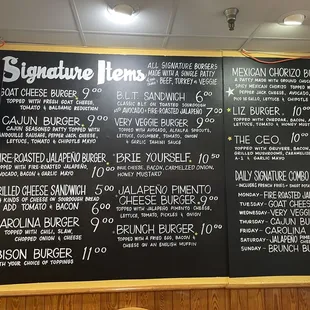 Signature Items
ALL SIGNATURE BURGERS
MADE WITH A SINGLE PATTY
BEEF, TURKEY or VEGGIE
GOAT CHEESE BURGER 9.00
TOPPED WITH FRESH GOAT CHEESE,
TOMATO & BALSAMIC REDUCTION
CAJUN BURGER 9.00
CAJUN SEASONED PATTY TOPPED WITH
ANDOUILLE SAUSAGE, PEPPER JACK CHEESE,
LETTUCE, TOMATO & CHIPOTLE MAYO
FIRE ROASTED JALAPEÑO BURGER
TOPPED WITH FIRE ROASTED JALAPEÑO,
BACON 10.00
GRILLED CHEESE SANDWICH 5.00
2 KINDS OF CHEESE ON SOURDOUGH BREAD
ADD TOMATO & BACON 6.00
CAROLINA BURGER 9.00
TOPPED WITH CHILI, SLAW,
CHOPPED ONION & CHEESE
BISON BURGER 11.00
WITH YOUR CHOICE OF TOPPINGS
B.L.T. SANDWICH 6.00
CLASSIC BLT ON TOASTED SOURDOUGH
with AVOCADO & FIRE ROASTED JALAPEÑO 7.50
VERY VEGGIE BURGER 9.00
TOPPED WITH AVOCADO, ALFALFA SPROUTS,
LETTUCE, CUCUMBER, TOMATO, ONION
& GARLIC TAHINI SAUCE
"BRIE YOURSELF" 10.50
BRIE CHEESE, BACON, CARMELIZED ONION,
HONEY MUSTARD
JALAPEÑO PIMENTO
CHEESE BURGER 9.00
TOPPED WITH JALAPEÑO PIMENTO CHEESE,
LETTUCE, TOMATO, PICKLES & ONION
BRUNCH BURGER 10.00
TOPPED WITH A FRIED EGG, BACON &
CHEESE ON AN ENGLISH MUFFIN
MEXICAN CHORIZO B
A PATTY MADE WITH GROUND CHUCK
SPICY MEXICAN CHORIZO TOPPED
PEPPER JACK CHEESE, AVOCADO,
PICO DE GALLO, LETTUCE & CHIPOTLE
LIZ BURGER 10
TOPPED WITH CHEDDAR, BACON,
TOMATO, ONION & HONEY
THE CEO 10.
DRY RUBBED, BACON,
CHEESE, CARAMELIZED ONION,
A-1 & GARLIC MAYO
DAILY SIGNATURE COMBO
INCLUDES FRENCH FRIES
MONDAY - FIRE ROASTED JA
TUESDAY - GOAT CHEES
WEDNESDAY - VERY VEGG
THURSDAY - CAJUN BUR
FRIDAY - CAROLINA
SATURDAY - JALAPEÑO
CHEESE
SUNDAY - BRUNCH B